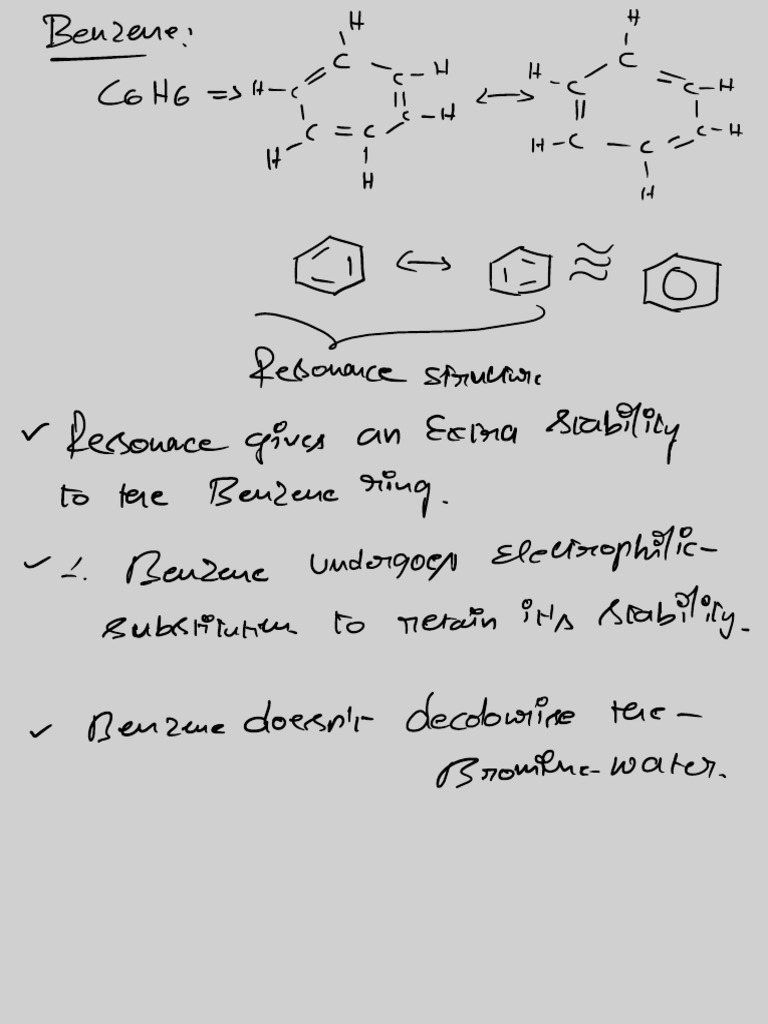 Benzene:
C6H6 => H-C C C-H C-H C = C H H H <-> H C H-C C-H H-C C C-H H
<->
Resonance structure
✓ Resonace gives an Extra stability
to the Benzene ring.
✓ ∴ Benzene undergoes Electrophilic-
substitution to retain its stability.
✓ Benzene doesn't decolourise the -
Bromine-water.